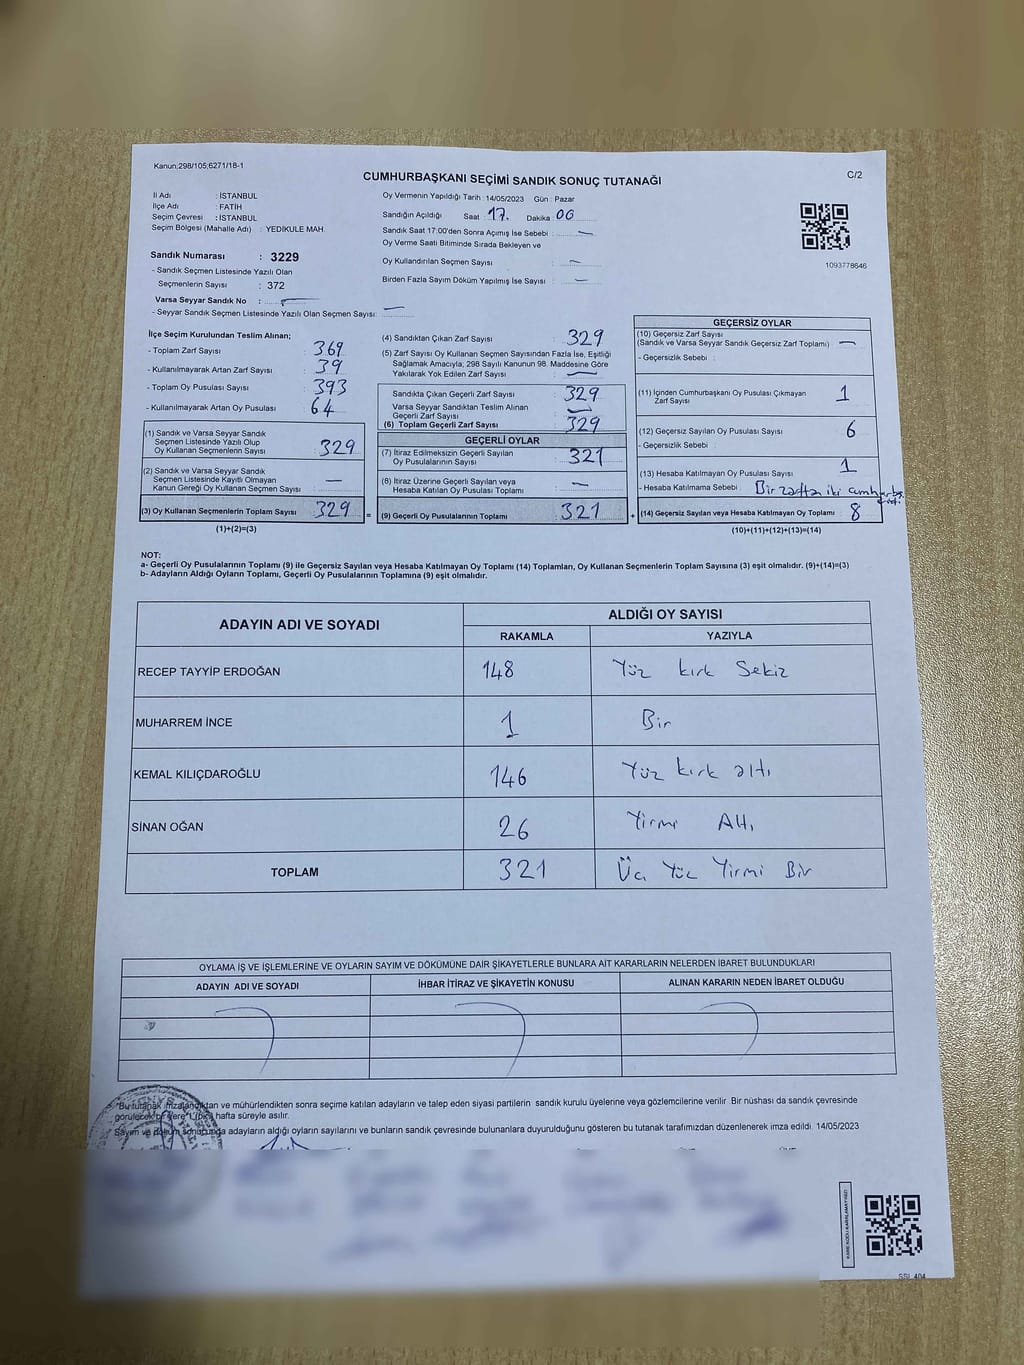 Kanun;298/105;6271/18-1
CUMHURBAŞKANI SEÇİMİ SANDIK SONUÇ TUTANAĞI
C/2
İl Adı : İSTANBUL
İlçe Adı : FATİH
Seçim Çevresi : İSTANBUL
Seçim Bölgesi (Mahalle Adı) : YEDİKULE MAH.
Sandık Numarası : 3229
- Sandık Seçmen Listesinde Yazılı Olan
Seçmenlerin Sayısı : 372
Varsa Seyyar Sandık No :
- Seyyar Sandık Seçmen Listesinde Yazılı Olan Seçmen Sayısı: —
Oy Vermenin Yapıldığı Tarih : 14/05/2023 Gün : Pazar
Sandığın Açıldığı Saat 17. Dakika 00
Sandık Saat 17:00'den Sonra Açımış İse Sebebi : —
Oy Verme Saati Bitiminde Sırada Bekleyen ve
Oy Kullandırılan Seçmen Sayısı : —
Birden Fazla Sayım Döküm Yapılmış İse Sayısı : —
1093778646
İlçe Seçim Kurulundan Teslim Alınan;
- Toplam Zarf Sayısı : 369
- Kullanılmayarak Artan Zarf Sayısı : 39
- Toplam Oy Pusulası Sayısı : 393
- Kullanılmayarak Artan Oy Pusulası : 64
(1) Sandık ve Varsa Seyyar Sandık
Seçmen Listesinde Yazılı Olup
Oy Kullanan Seçmenlerin Sayısı : 329
(2) Sandık ve Varsa Seyyar Sandık
Seçmen Listesinde Kayıtlı Olmayan
Kanun Gereği Oy Kullanan Seçmen Sayısı : —
(3) Oy Kullanan Seçmenlerin Toplam Sayısı : 329
(1)+(2)=(3)
=
(4) Sandıktan Çıkan Zarf Sayısı : 329
(5) Zarf Sayısı Oy Kullanan Seçmen Sayısından Fazla İse, Eşitliği
Sağlamak Amacıyla; 298 Sayılı Kanunun 98. Maddesine Göre
Yakılarak Yok Edilen Zarf Sayısı : —
Sandıkta Çıkan Geçerli Zarf Sayısı : 329
Varsa Seyyar Sandıktan Teslim Alınan
Geçerli Zarf Sayısı : —
(6) Toplam Geçerli Zarf Sayısı : 329
GEÇERLİ OYLAR
(7) İtiraz Edilmeksizin Geçerli Sayılan
Oy Pusulalarının Sayısı : 321
(8) İtiraz Üzerine Geçerli Sayılan veya
Hesaba Katılan Oy Pusulası Toplamı : —
(9) Geçerli Oy Pusulalarının Toplamı : 321
+
GEÇERSİZ OYLAR
(10) Geçersiz Zarf Sayısı
(Sandık ve Varsa Seyyar Sandık Geçersiz Zarf Toplamı) : —
- Geçersizlik Sebebi :
(11) İçinden Cumhurbaşkanı Oy Pusulası Çıkmayan
Zarf Sayısı : 1
(12) Geçersiz Sayılan Oy Pusulası Sayısı : 6
- Geçersizlik Sebebi :
(13) Hesaba Katılmayan Oy Pusulası Sayısı : 1
- Hesaba Katılmama Sebebi : Bir zarftan iki cumhurbş.
(14) Geçersiz Sayılan veya Hesaba Katılmayan Oy Toplamı : 8
(10)+(11)+(12)+(13)=(14)
NOT:
a- Geçerli Oy Pusulalarının Toplamı (9) ile Geçersiz Sayılan veya Hesaba Katılmayan Oy Toplamı (14) Toplamları, Oy Kullanan Seçmenlerin Toplam Sayısına (3) eşit olmalıdır. (9)+(14)=(3)
b- Adayların Aldığı Oyların Toplamı, Geçerli Oy Pusulalarının Toplamına (9) eşit olmalıdır.
ADAYIN ADI VE SOYADI
ALDIĞI OY SAYISI
RAKAMLA YAZIYLA
RECEP TAYYİP ERDOĞAN 148 Yüz kırk Sekiz
MUHARREM İNCE 1 Bir
KEMAL KILIÇDAROĞLU 146 Yüz kırk altı
SİNAN OĞAN 26 Yirmi Altı
TOPLAM 321 Üç Yüz Yirmi Bir
OYLAMA İŞ VE İŞLEMLERİNE VE OYLARIN SAYIM VE DÖKÜMÜNE DAİR ŞİKAYETLERLE BUNLARA AİT KARARLARIN NELERDEN İBARET BULUNDUKLARI
ADAYIN ADI VE SOYADI İHBAR İTİRAZ VE ŞİKAYETİN KONUSU ALINAN KARARIN NEDEN İBARET OLDUĞU
"Bu tutanak imzalandıktan ve mühürlendikten sonra seçime katılan adayların ve talep eden siyasi partilerin sandık kurulu üyelerine veya gözlemcilerine verilir. Bir nüshası da sandık çevresinde
görülecek bir yere 1 (bir) hafta süreyle asılır.
Sayım ve döküm sonucunda adayların aldığı oyların sayılarını ve bunların sandık çevresinde bulunanlara duyurulduğunu gösteren bu tutanak tarafımızdan düzenlenerek imza edildi. 14/05/2023
SSİ 404